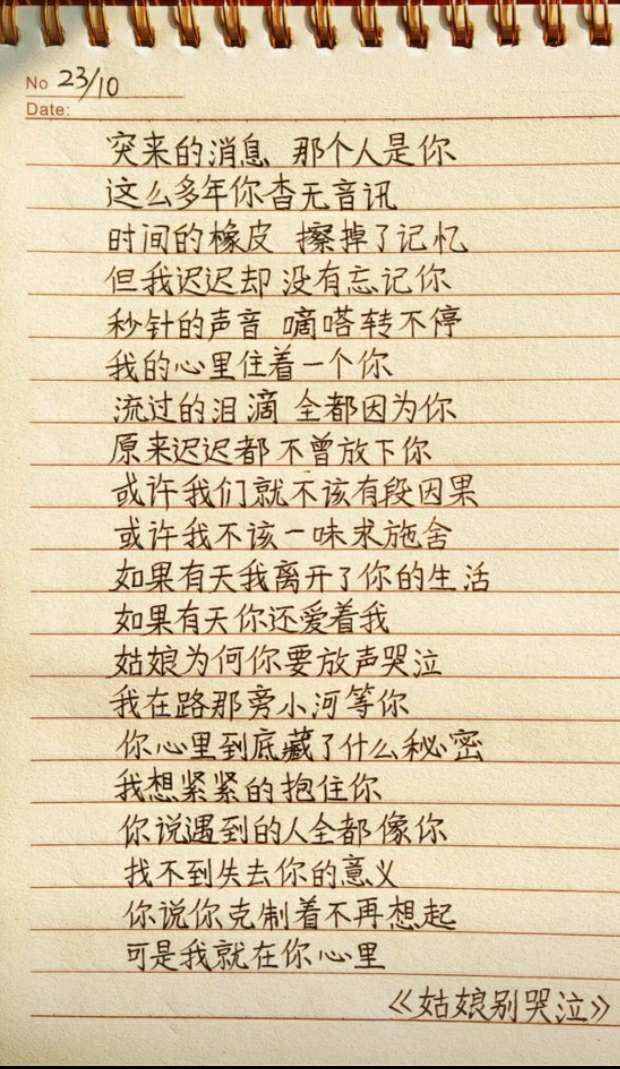 No 23/10
Date:
突来的消息 那个人是你
这么多年你杳无音讯
时间的橡皮 擦掉了记忆
但我迟迟却没有忘记你
秒针的声音 嘀嗒转不停
我的心里住着一个你
流过的泪滴 全都因为你
原来迟迟都不曾放下你
或许我们就不该有段因果
或许我不该一味求施舍
如果有天我离开了你的生活
如果有天你还爱着我
姑娘为何你要放声哭泣
我在路那旁小河等你
你心里到底藏了什么秘密
我想紧紧的抱住你
你说遇到的人全都像你
找不到失去你的意义
你说你克制着不再想起
可是我就在你心里
《姑娘别哭泣》